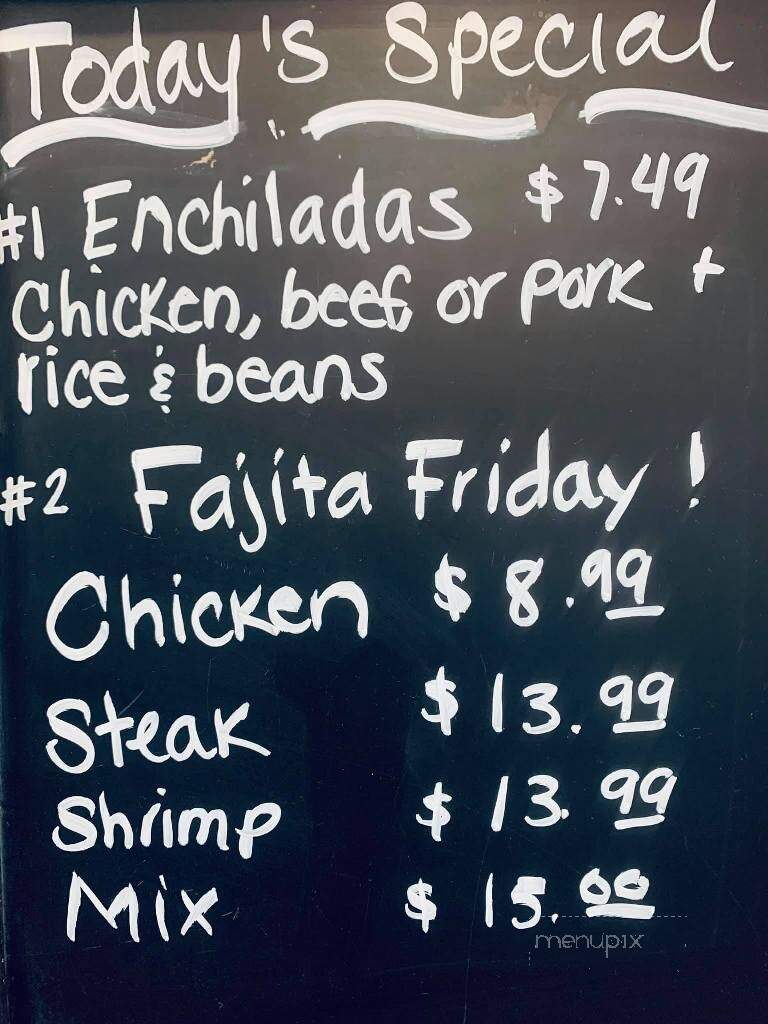 Today's Special
#1 Enchiladas $7.49
Chicken, beef, or pork +
rice & beans
#2 Fajita Friday!
Chicken $8.99
Steak $13.99
Shrimp $13.99
Mix $15.00
menupix